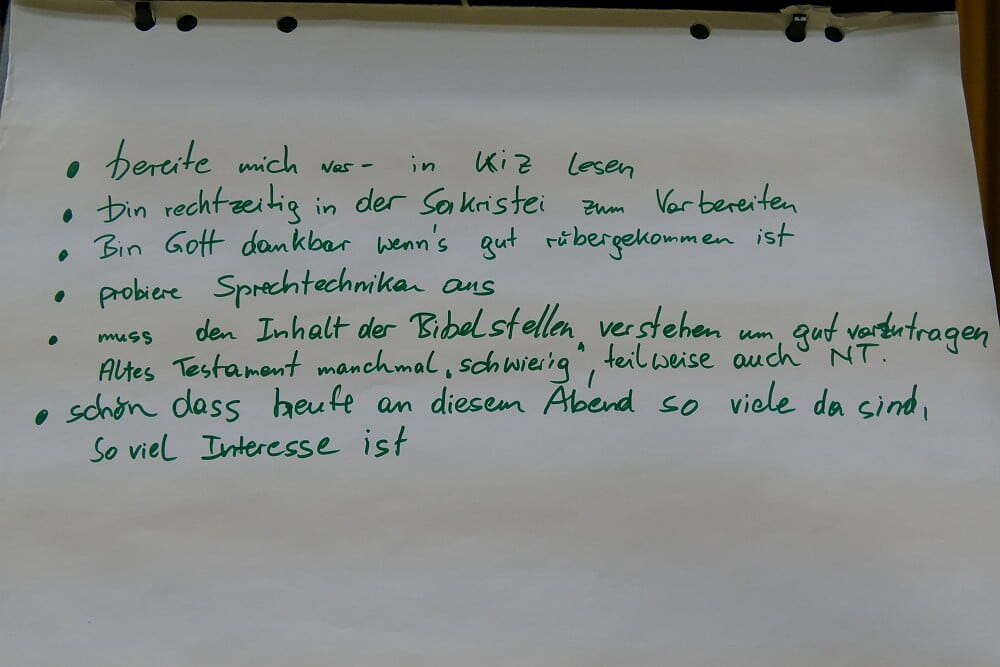 • bereite mich vor - in KiZ lesen
• bin rechtzeitig in der Sakristei zum Vorbereiten
• Bin Gott dankbar wenn's gut rübergekommen ist
• probiere Sprechtechniken aus
• muss den Inhalt der Bibelstellen verstehen um gut vorzutragen
Altes Testament manchmal „schwierig“, teilweise auch NT.
• schön dass heute an diesem Abend so viele da sind,
so viel Interesse ist